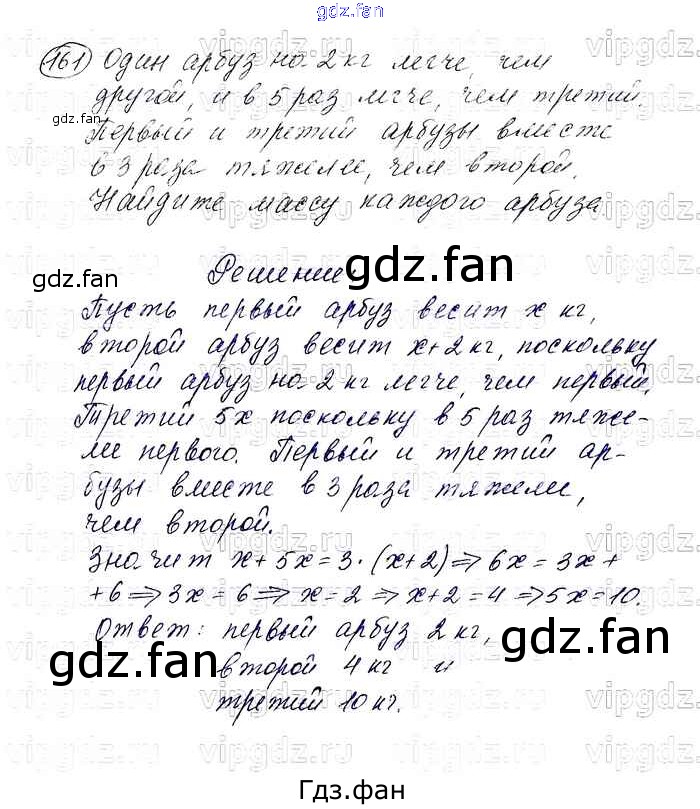 gdz.fan
161 Один арбуз на 2 кг легче, чем
другой, и в 5 раз легче, чем третий.
gdz.fan
Первый и третий арбузы вместе
в 3 раза тяжелее, чем второй.
Найдите массу каждого арбуза
Решение:
gdz.fan
gdz.fan
Пусть первый арбуз весит x кг,
второй арбуз весит x+2 кг, поскольку
первый арбуз на 2 кг легче, чем первый.
Третий 5x поскольку в 5 раз тяже-
лее первого. Первый и третий ар-
бузы вместе в 3 раза тяжелее,
чем второй.
Значит x+5x=3·(x+2)⇒6x=3x+
+6⇒3x=6⇒x=2⇒x+2=4⇒5x=10.
Ответ: первый арбуз 2 кг,
gdz.fan
gdz.fan
второй 4 кг и
третий 10 кг.
Гдз.фан